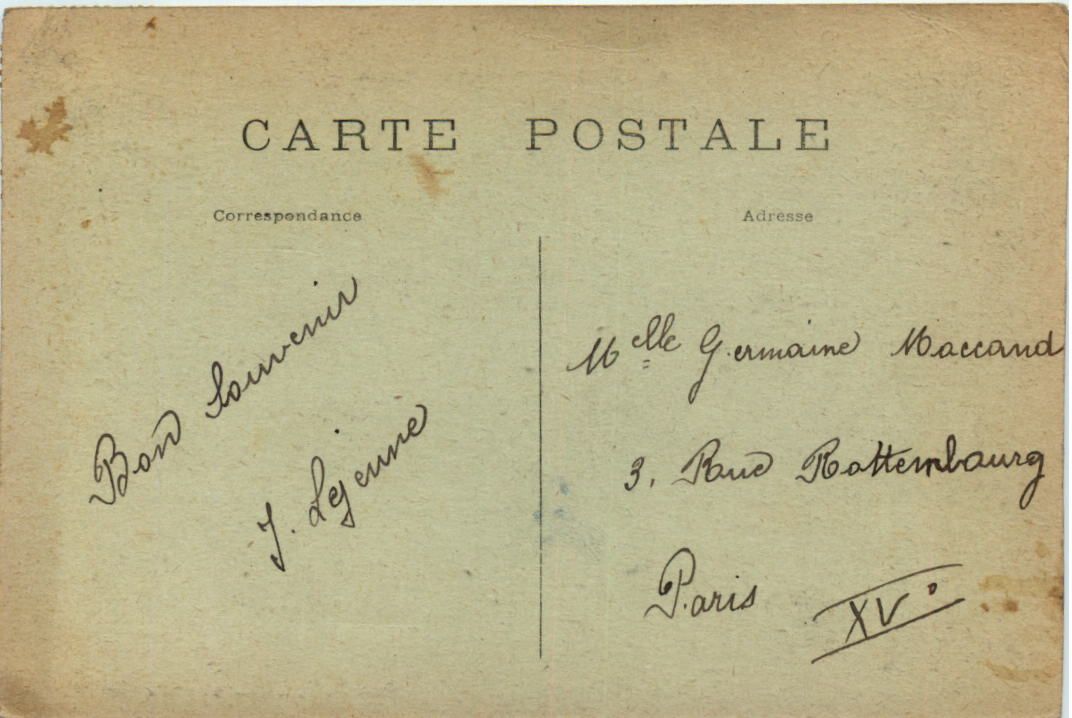 CARTE POSTALE
Correspondance
Adresse
Bon Souvenir
J. Lejeune
Melle Germaine Maccand
3, Rue Rottembourg
Paris XVe